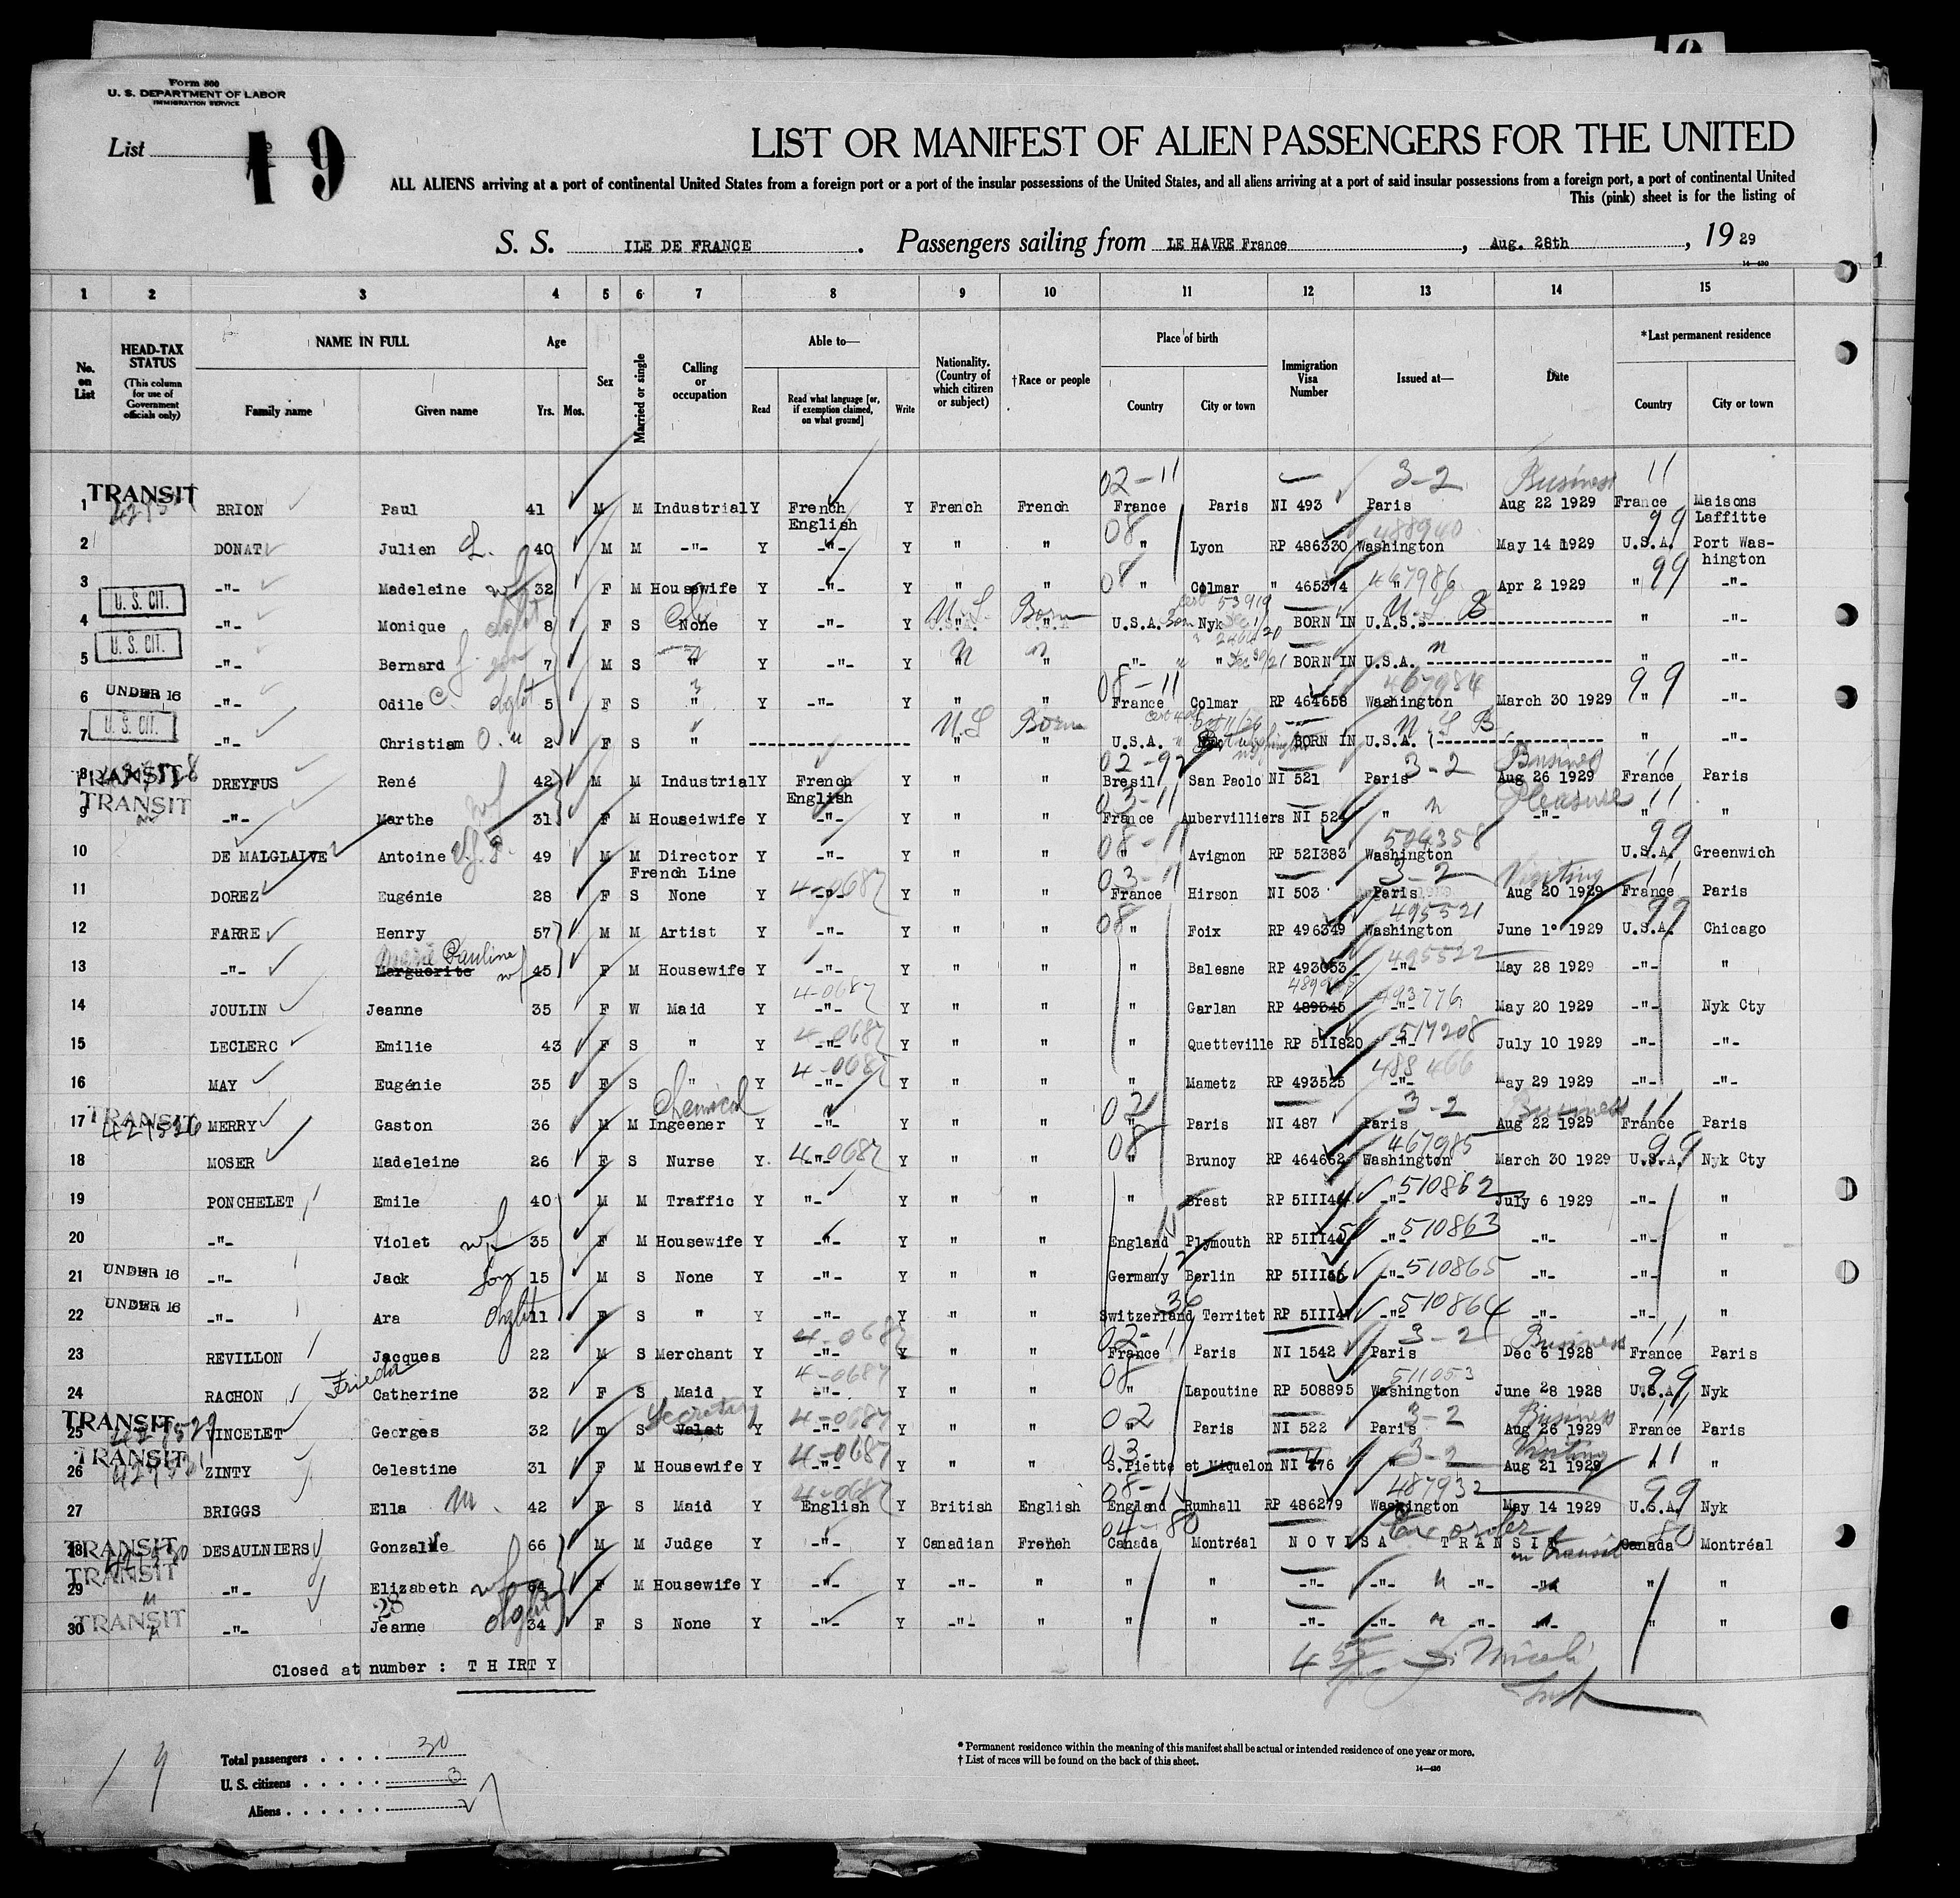 Form 500
U. S. DEPARTMENT OF LABOR
IMMIGRATION SERVICE
List 19
LIST OR MANIFEST OF ALIEN PASSENGERS FOR THE UNITED
ALL ALIENS arriving at a port of continental United States from a foreign port or a port of the insular possessions of the United States, and all aliens arriving at a port of said insular possessions from a foreign port, a port of continental United
This (pink) sheet is for the listing of
S. S. ILE DE FRANCE . Passengers sailing from LE HAVRE France , Aug. 28th , 19 29
14—430
1 2 3 4 5 6 7 8 9 10 11 12 13 14 15
No. on List
HEAD-TAX STATUS (This column for use of Government officials only)
NAME IN FULL Family name Given name
Age Yrs. Mos.
Sex
Married or single
Calling or occupation
Able to— Read Read what language [or, if exemption claimed, on what ground] Write
Nationality. (Country of which citizen or subject)
†Race or people
Place of birth Country City or town
Immigration Visa Number
Issued at—
Date
*Last permanent residence Country City or town
02-11 3-2 Business 11
1 TRANSIT BRION Paul 41 M M Industrial Y French English Y French French France Paris NI 493 Paris Aug 22 1929 France Maisons Laffitte
08 488940 99
2 DONAT Julien L. 40 M M -"- Y -"- Y " " " Lyon RP 486330 Washington May 14 1929 U.S.A. Port Washington
08 467986 99
3 -"- Madeleine wf 32 F M Housewife Y -"- Y " " " Colmar " 465374 Apr 2 1929 " -"-
4 U. S. CIT. -"- Monique dght 8 F S None Y -"- Y U.S. Born U.S.A. Nyk BORN IN U.A.S. " -"-
5 U. S. CIT. -"- Bernard son 7 M S " Y -"- Y " " "- " BORN IN U.S.A. " -"-
08-11 467984 99
6 UNDER 16 -"- Odile C. dght 5 F S " Y -"- Y " " France Colmar RP 464658 Washington March 30 1929 " -"-
7 U. S. CIT. -"- Christiam O. 2 F S " U.S Born " " U.S.A. BORN IN U.S.A. " -"-
02-92 3-2 Business 11
8 TRANSIT DREYFUS René 42 M M Industrial Y French English Y " " Bresil San Paolo NI 521 Paris Aug 26 1929 France Paris
03-11 Pleasure 11
9 TRANSIT -"- Marthe wf 31 F M Houseiwife Y -"- Y " " France Aubervilliers NI 524 " -"- " "
08-11 524358 99
10 DE MALGLAIVE Antoine 49 M M Director French Line Y -"- Y " " " Avignon RP 521383 Washington U.S.A. Greenwich
03-11 3-2 Visiting 11
11 DOREZ Eugénie 28 F S None Y 4-0687 -"- Y " " France Hirson NI 503 Paris Aug 20 1929 France Paris
08 495521 99
12 FARRE Henry 57 M M Artist Y -"- Y " " " Foix RP 496349 Washington June 1° 1929 U.S.A. Chicago
Pauline 495522
13 -"- Marguerite wf 45 F M Housewife Y -"- Y " " " Balesne RP 493053 -"- May 28 1929 -"- "
4-0687 493776
14 JOULIN Jeanne 35 F W Maid Y -"- Y " " " Garlan RP 489545 -"- May 20 1929 -"- Nyk Cty
4-0687 517208
15 LECLERC Emilie 43 F S " Y -"- Y " " " Quetteville RP 5II820 -"- July 10 1929 -"- -"-
4-0687 488466
16 MAY Eugénie 35 F S " Y -"- Y " " " Mametz RP 493525 -"- May 29 1929 -"- -"-
Chemical 02 3-2 Business 11
17 TRANSIT MERRY Gaston 36 M M Ingeener Y -"- Y " " " Paris NI 487 Paris Aug 22 1929 France Paris
08 467985 99
18 MOSER Madeleine 26 F S Nurse Y 4-0687 -"- Y " " " Brunoy RP 464662 Washington March 30 1929 U.S.A. Nyk Cty
510862
19 PONCHELET Emile 40 M M Traffic Y "- Y " " " Brest RP 5III44 -"- July 6 1929 -"- "
510863
20 -"- Violet wf 35 F M Housewife Y -"- Y " " England Plymouth RP 5III45 -"- -"- -"- "
510865
21 UNDER 16 -"- Jack son 15 M S None Y -"- Y " " Germany Berlin RP 5III46 -"- -"- -"- "
36 510864
22 UNDER 16 -"- Ara dght 11 F S " Y -"- Y " " Switzerland Territet RP 5III47 -"- -"- -"- "
4-0687 02-11 3-2 Business 11
23 REVILLON Jacques 22 M S Merchant Y -"- Y " " France Paris NI 1542 Paris Dec 6 1928 France Paris
Frieda 4-0687 08 511053 99
24 RACHON Catherine 32 F S Maid Y -"- Y " " " Lapoutine RP 508895 Washington June 28 1928 U.S.A. Nyk
Secretary 4-0687 02 3-2 Business 11
25 TRANSIT VINCELET Georges 32 m S Valet Y -"- Y " " " Paris NI 522 Paris Aug 26 1929 France Paris
4-0687 03- 3-2 Visiting 11
26 TRANSIT ZINTY Celestine 31 F M Housewife Y -"- Y " " S.Piette et Miquelon NI 476 " Aug 21 1929 " "
4-0687 08- 487932 99
27 BRIGGS Ella M. 42 F S Maid Y English Y British English England Rumhall RP 486279 Washington May 14 1929 U.S.A. Nyk
04-80 80
28 TRANSIT DESAULNIERS Gonzalve 66 M M Judge Y -"- Y Canadian French Canada Montréal NO VISA TRANSIT in transit Canada Montréal
29 TRANSIT -"- Elizabeth wf 64 F M Housewife Y -"- Y -"- " " " -"- -"- -"- -"- " "
28
30 TRANSIT -"- Jeanne dght 34 F S None Y -"- Y -"- " " " -"- -"- -"- " "
Closed at number : T H I R T Y
19
Total passengers . . . . 30
U. S. citizens . . . . . 3
Aliens . . . . . .
* Permanent residence within the meaning of this manifest shall be actual or intended residence of one year or more.
† List of races will be found on the back of this sheet.
14—430